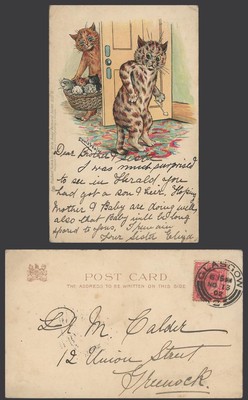 Dear Brother & Sister
I was much surprised
to see in Herald you
had got a son & heir. Hope
Mother & Baby are doing well
also that Baby will be long
spared to yous, I am
Your Sister Eliza
POST CARD
THE ADDRESS TO BE WRITTEN ON THIS SIDE
GLASGOW
M. Calder
12 Union Street
Greenock